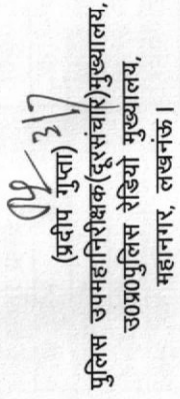 (प्रदीप गुप्ता)
पुलिस उपमहानिरीक्षक(दूरसंचार)मुख्यालय,
उ०प्र०पुलिस रेडियो मुख्यालय,
महानगर, लखनऊ।